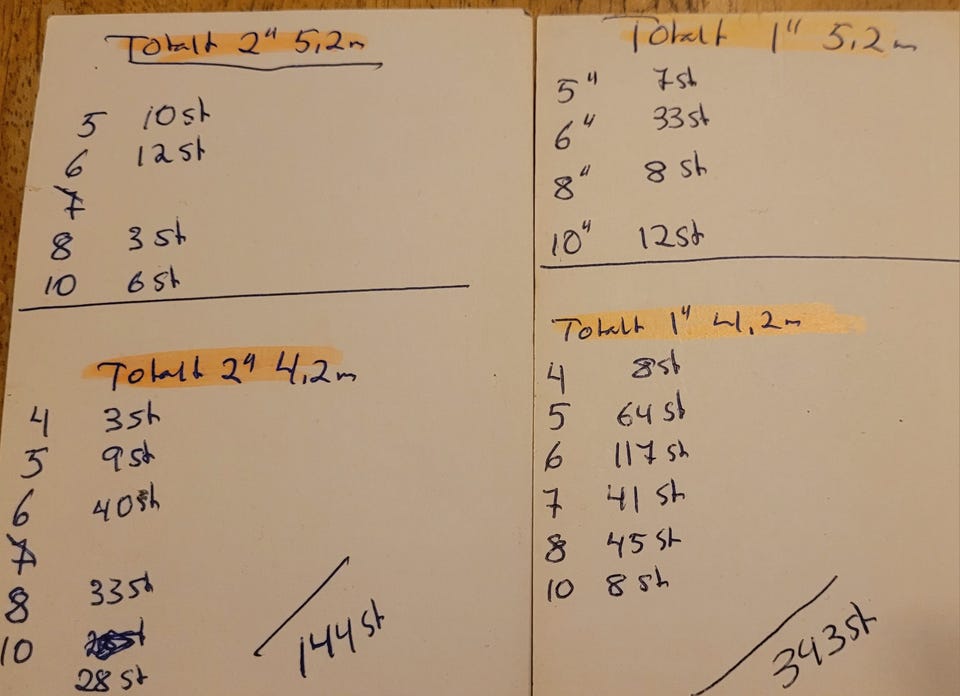 Totalt 2" 5,2m
5 10st
6 12st
7
8 3st
10 6st
Totalt 2" 4,2m
4 3st
5 9st
6 40st
7
8 33st
10
28st
144st
Totalt 1" 5,2m
5" 7st
6" 33st
8" 8st
10" 12st
Totalt 1" 4,2m
4 8st
5 64st
6 117st
7 41st
8 45st
10 8st
343st